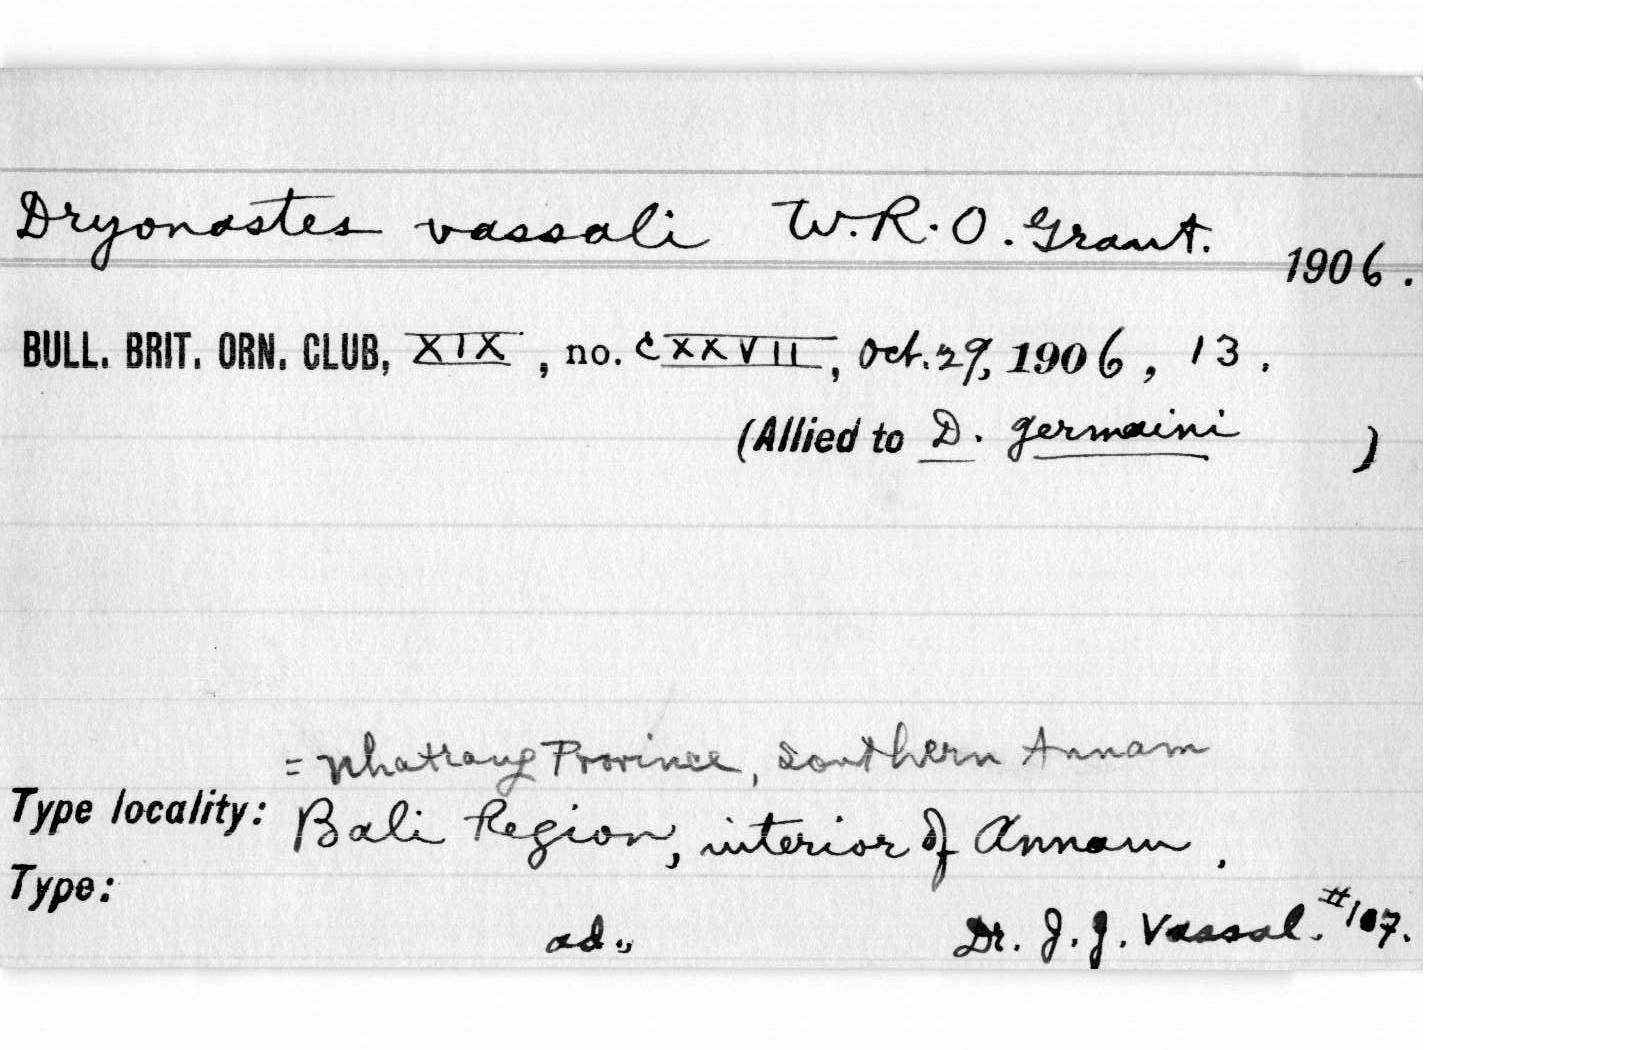 Dryonastes vassali W.R.O. Grant. 1906.
BULL. BRIT. ORN. CLUB, XIX, no. CXXVII, Oct. 29, 1906, 13.
(Allied to D. germaini )
= Nhatrang Province, Southern Annam
Type locality: Bali Region, interior of Annam.
Type:
ad., Dr. J. J. Vassal. #107.